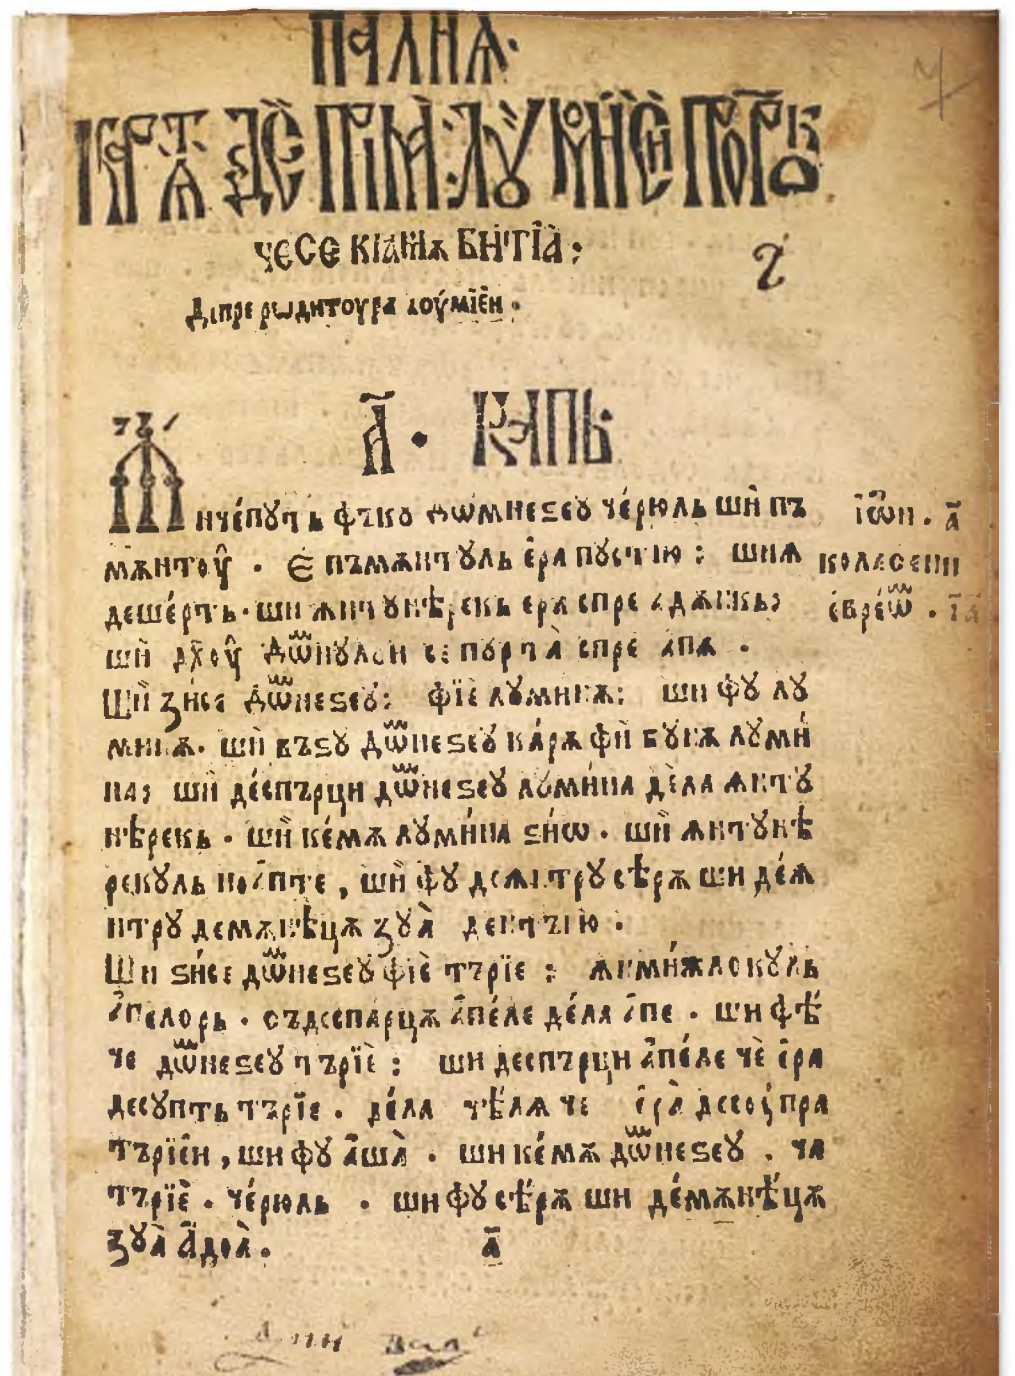 ПАЛИѦ·
КАРТѦ ДЕ ПРИМА : ЛꙊ МѠИСЕЙ ПРОРОК
ЧЕСЕ КІАМѦ БИТІА :
Дѣпре рѡдитоура лоуміен ·
а҃ · КАПЬ
нчепꙋть фъкꙋ дѡмнеꙃеꙋ черюль ши пъ
мѫнтоу · Є пъмѫнтꙋль ера пꙋстїю : шиѫ
дешерть · ши ѫнтꙋнѣрекь ера спре адѫнкь :
ши дх҃оу дⷪ҇мнꙋлꙋи се пꙋрта спре апѫ ·
Ши зисе дⷪ҇мнеꙃеꙋ : фїе лꙋминѫ : ши фꙋ лꙋ
минѫ · ши въꙃꙋ дⷪ҇мнеꙃеꙋ карѫ фи бꙋнѫ лꙋми
на : ши деспърци дⷪ҇мнеꙃеꙋ лꙋмина дела ѫнтꙋ
нѣрекь · ши кемѫ лꙋмина ꙃиѡ · ши ѫнтꙋнѣ
рекꙋль ноапте , ши фꙋ деѫнтрꙋ сѣрѫ ши деѫ
нтрꙋ демѫнѣцѫ зꙋа дентъню ·
Ши ꙃисе дⷪ҇мнеꙃеꙋ фїе търїе : ѫнмижлокꙋль
апелорь · съдеспарцѫ апеле дела апе · ши фѣ
че дⷪ҇мнеꙃеꙋ търїе : ши деспърци апеле че ера
десꙋпть търїе · дела чѣлѫ че ера десоупра
търїеи , ши фꙋ аша · ши кемѫ дⷪ҇мнеꙃеꙋ · ча
търїе · черюль · ши фꙋ сѣрѫ ши демѫнѣцѫ
зꙋа адоа · а҃
іѡн · а҃
коласени
евреѡм · і҃а